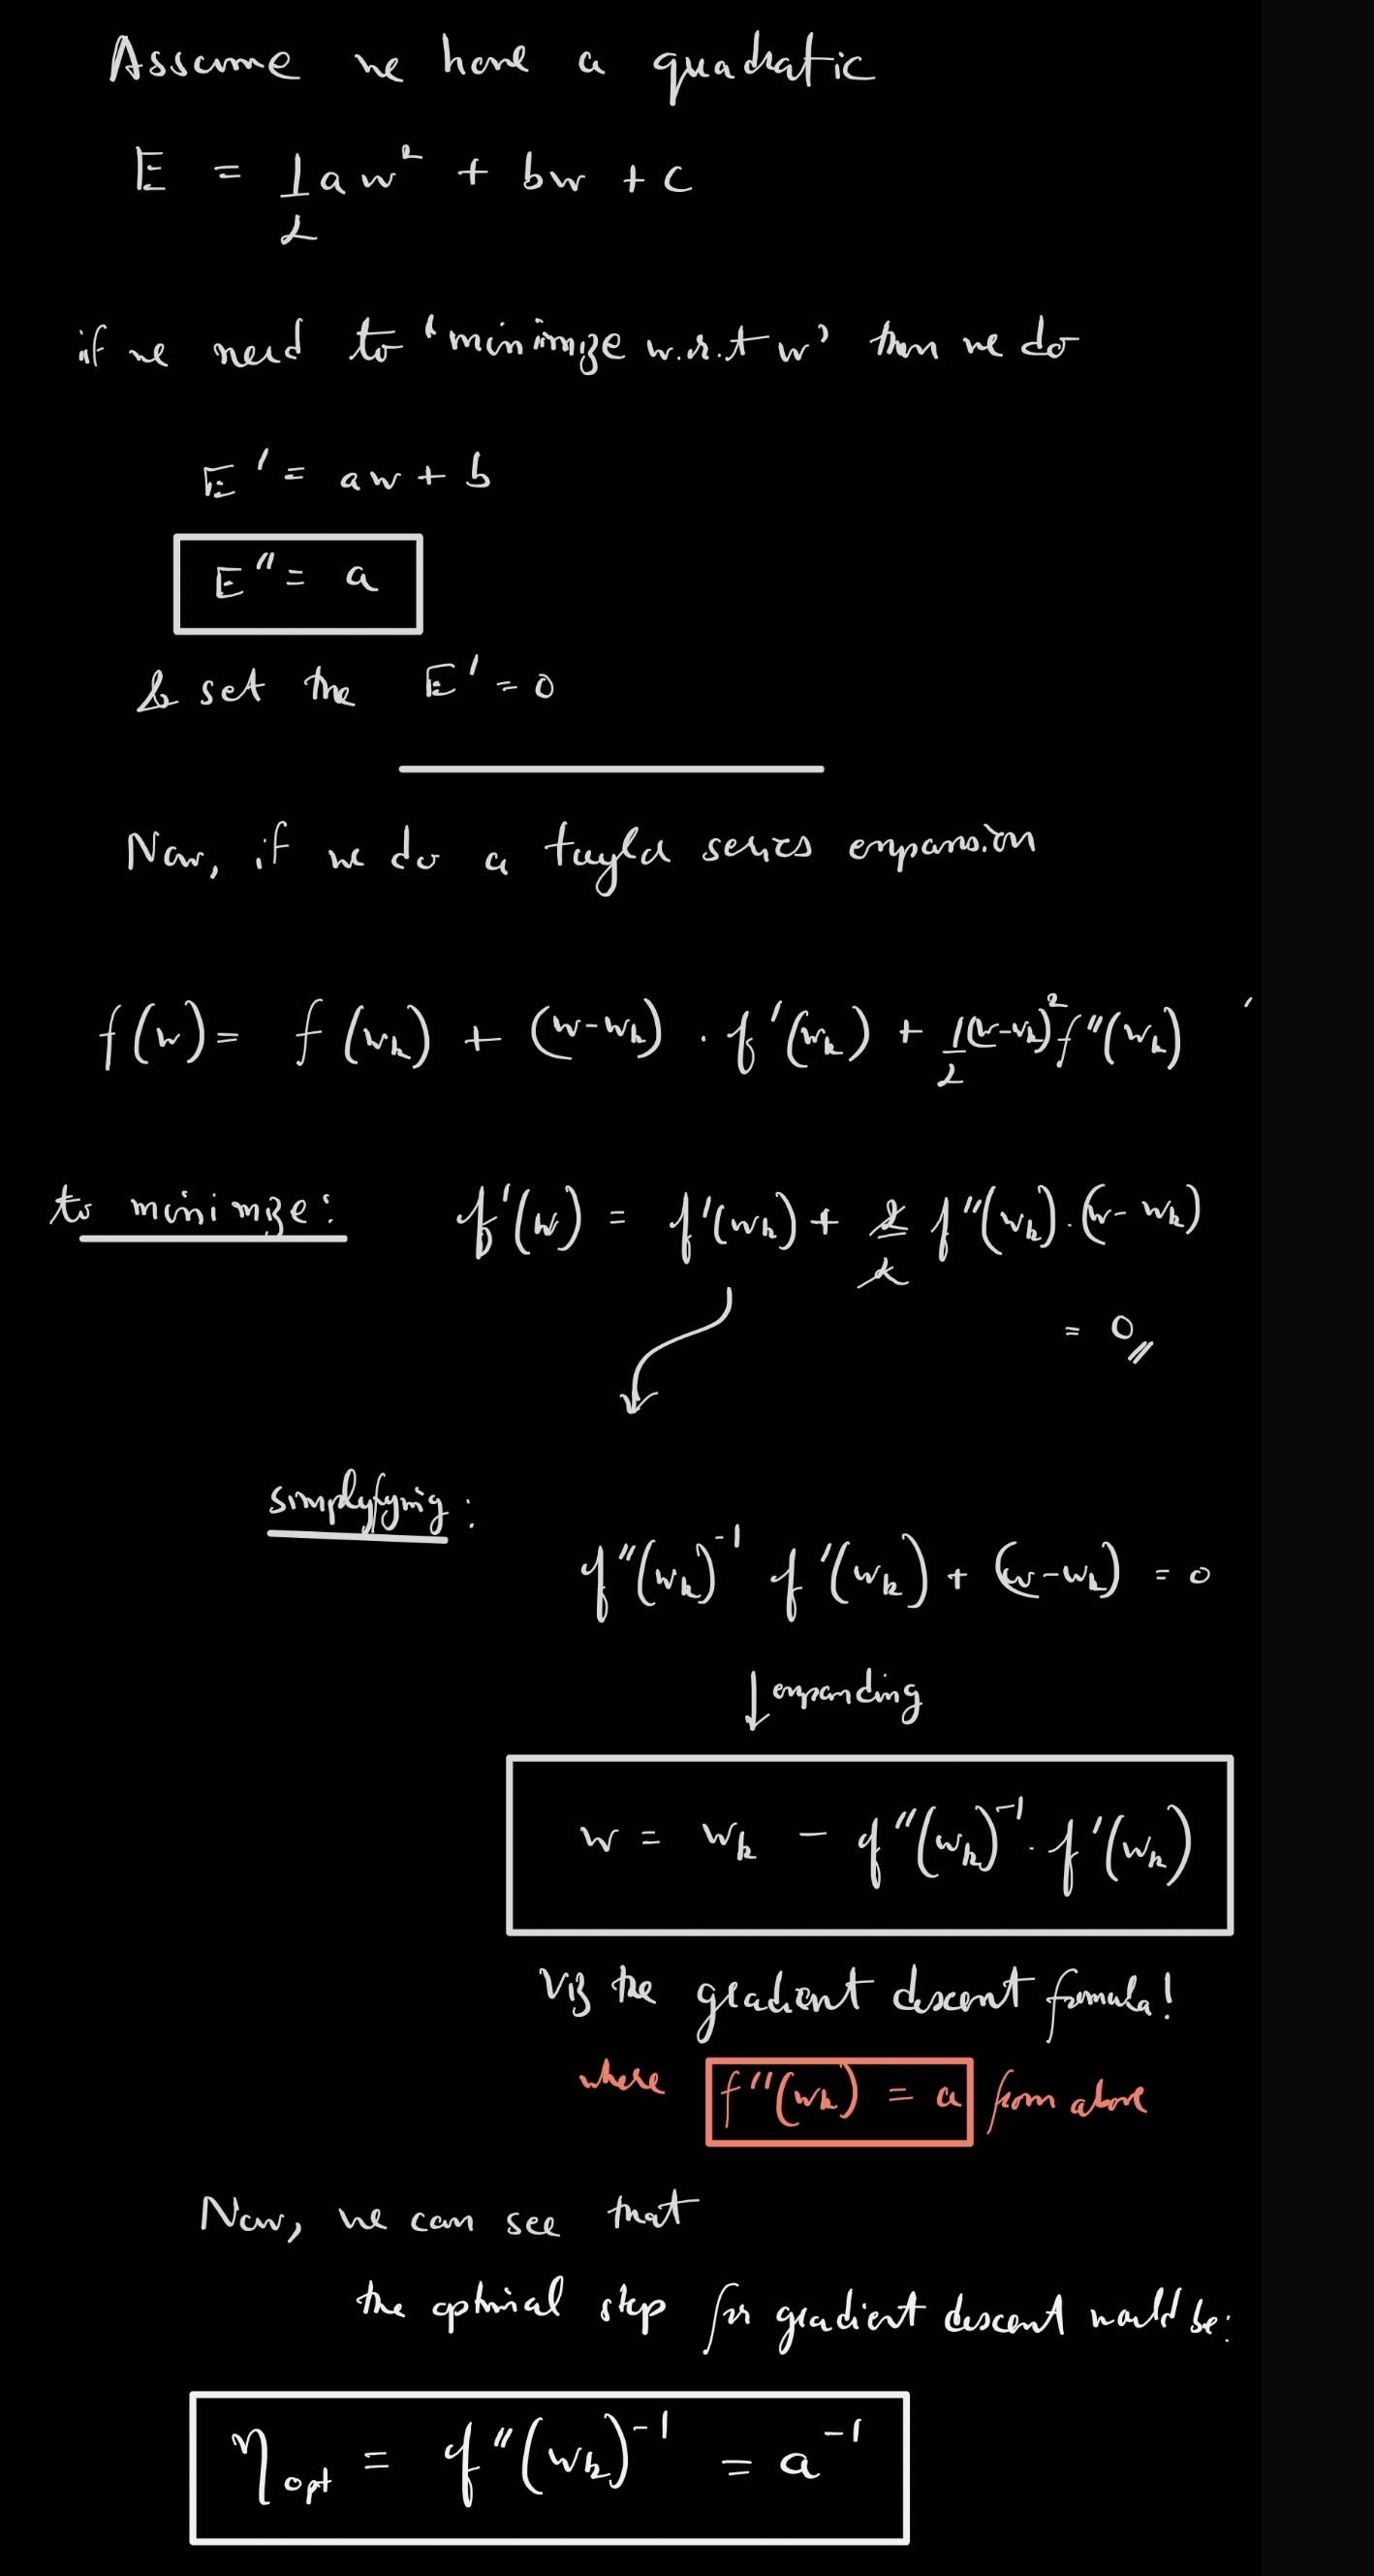 Assume we have a quadratic
E = 1/2 a w² + bw + c
if we need to 'minimize w.r.t w' then we do
E' = aw + b
E'' = a
& set the E' = 0
Now, if we do a taylor series expansion
f(w) = f(w_k) + (w-w_k) . f'(w_k) + 1/2 (w-w_k)² f''(w_k)
to minimize: f'(w) = f'(w_k) + 2/2 f''(w_k) . (w - w_k)
= 0
simplyfying:
f''(w_k)⁻¹ f'(w_k) + (w-w_k) = 0
↓ expanding
w = w_k - f''(w_k)⁻¹ . f'(w_k)
Viz the gradient descent formula!
where f''(w_k) = a from above
Now, we can see that
the optimal step for gradient descent would be:
η_opt = f''(w_k)⁻¹ = a⁻¹